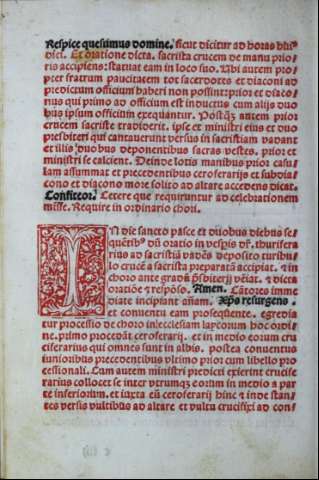 Respice quesumus domine. sicut dicitur ad horas bñi
dici. Et oratione dicta. sacrista crucem de manu prio
ris accipiens: statuat eam in loco suo. Ubi autem pro
pter fratrum paucitatem tot sacerdotes et diaconi ad
predictum officium haberi non possint: prior et diaco
nus qui primo ad officium est inductus cum alijs duo
bus ipsum officium exequantur. Postq̃ autem prior
crucem sacriste tradiderit. ipse et ministri eius et duo
presbiteri qui cantauerunt versus in sacristiam vadant
et illis duobus deponentibus sacras vestes. prior et
ministri se calcient. Deinde lotis manibus prior casu
lam assummat et precedentibus ceroferarijs et subdia
cono et diacono more solito ad altare accedens dicat.
Confiteor. Cetere que requiruntur ad celebrationem
misse. Require in ordinario chori.
IN die sancto pasce et duobus diebus se
quẽtibꝰ dũ oratio in vesꝑis dr̃. thurifera
rius ad sacristiã vadẽs deposito turibu
lo crucẽ a sacrista preparatã accipiat. ⁊ in
choro ante gradũ p̃sbiterij veniat. ⁊ dicta
oratiõe ⁊ respõso. Amen. Cãtores imme
diate incipiant añam. Xp̃s resurgens.
et conuentu eam prosequẽte. egredia
tur processio de choro in ecclesiam laycorum hoc ordi
ne. primo procedãt ceroferarij. et in medio eorum cru
ciferarius qui omnes sunt in albis. postea conuentus
iunioribus precedentibus vltimo prior cum libello pro
cessionali. Cum autem ministri predicti exierint crucife
rarius collocet se inter vtrumqꝫ eorum in medio a par
te inferiorum. et iuxta eũ ceroferarij hinc ⁊ inde stan
tes versis vultibus ad altare et vultu crucifixi ad con